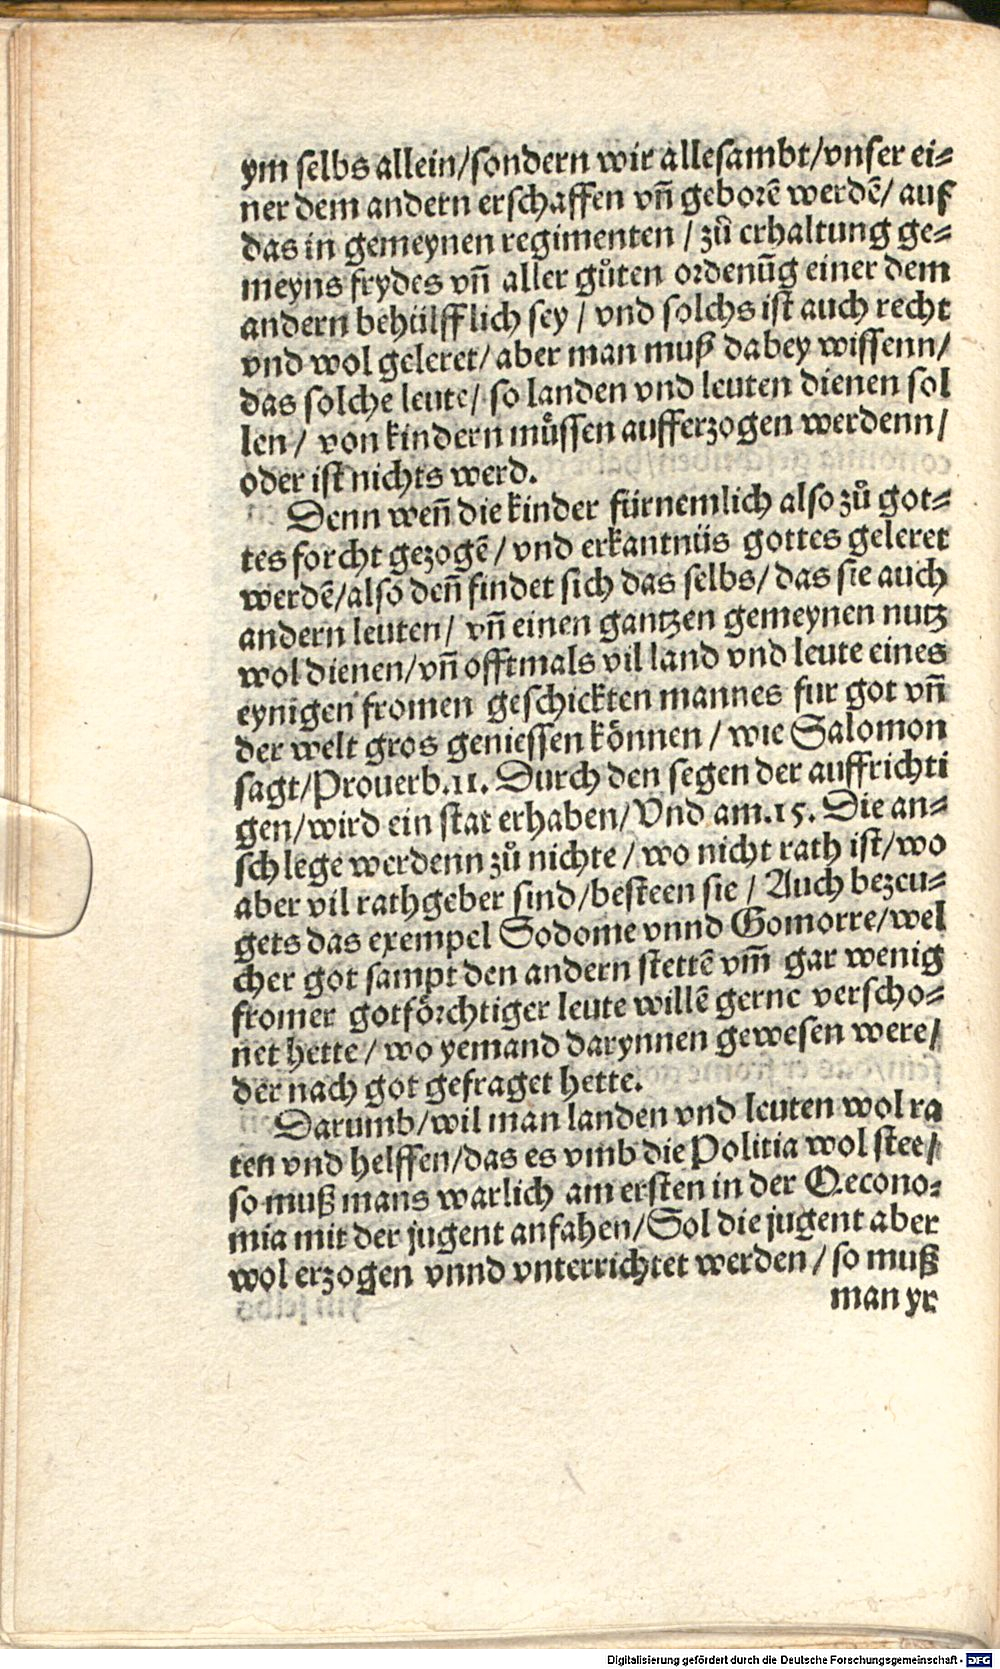 ym selbs allein/sondern wir allesambt/vnser ei⸗
ner dem andern erschaffen vñ geborē werdē/ auf
das in gemeynen regimenten / zů erhaltung ge⸗
meyns frydes vñ aller gůten ordenūg einer dem
andern behülfflich sey / vnd solchs ist auch recht
vnd wol geleret/ aber man muß dabey wissenn/
das solche leute/ so landen vnd leuten dienen sol
len / von kindern můssen aufferzogen werdenn/
oder ist nichts werd.
Denn weñ die kinder fürnemlich also zů got⸗
tes forcht gezogē / vnd erkantnüs gottes geleret
werdē/also deñ findet sich das selbs/ das sie auch
andern leuten/ vñ einen gantzen gemeynen nutz
wol dienen/vñ offtmals vil land vnd leute eines
eynigen fromen geschickten mannes fur got vñ
der welt gros geniessen können / wie Salomon
sagt/Prouerb.11. Durch den segen der auffrichti
gen/wird ein stat erhaben/Vnd am.15. Die an⸗
schlege werdenn zů nichte / wo nicht rath ist/wo
aber vil rathgeber sind/besteen sie / Auch bezeu⸗
gets das exempel Sodome vnnd Gomorre/wel
cher got sampt den andern stettē vm̄ gar wenig
fromer gotförchtiger leute willē gerne verscho⸗
net hette / wo yemand darynnen gewesen were/
der nach got gefraget hette.
Darumb/wil man landen vnd leuten wol ra
ten vnd helffen/das es vmb die Politia wol stee/
so muß mans warlich am ersten in der Oecono⸗
mia mit der jugent anfahen/Sol die jugent aber
wol erzogen vnnd vnterrichtet werden / so muß
man yr
Digitalisierung gefördert durch die Deutsche Forschungsgemeinschaft - DFG